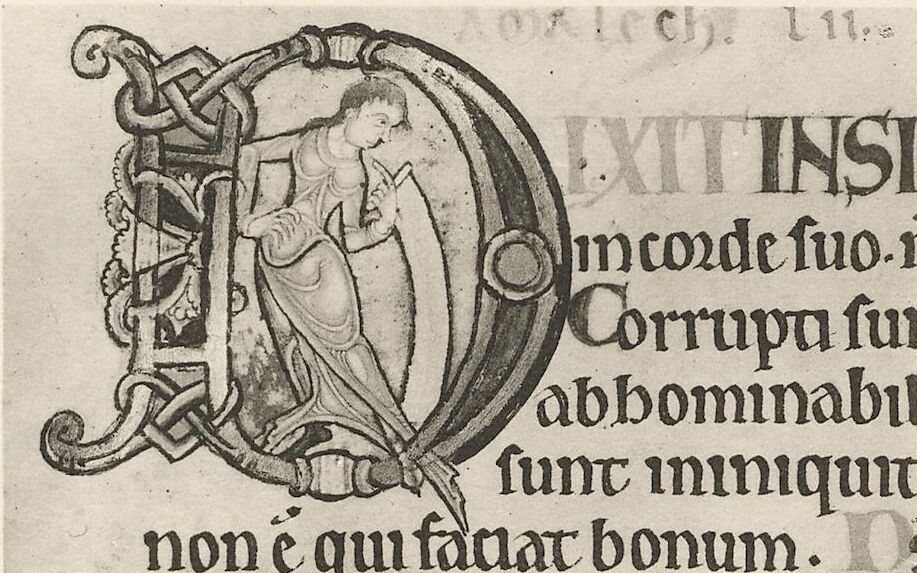 Amalech. lii.
DIXIT INSI
in corde suo. n
Corrupti su
abbominabil
sunt in iniquit
non ē qui faciat bonum. D